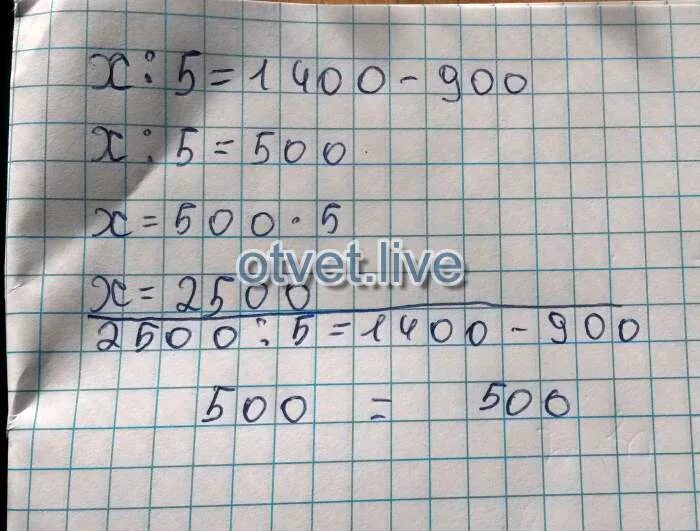 x : 5 = 1400 - 900
x : 5 = 500
x = 500 · 5
otvet.live
x = 2500
2500 : 5 = 1400 - 900
500 = 500